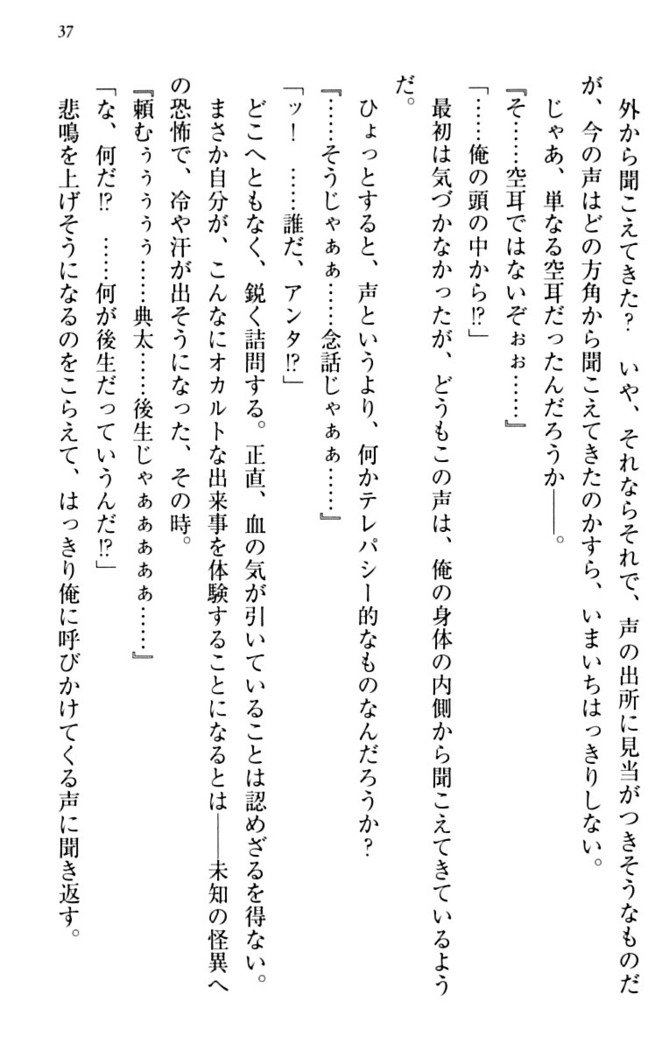 37
外から聞こえてきた？　いや、それならそれで、声の出所に見当がつきそうなものだ
が、今の声はどの方角から聞こえてきたのかすら、いまいちはっきりしない。
じゃあ、単なる空耳だったんだろうか――。
『そ……空耳ではないぞぉぉ……』
「……俺の頭の中から!?」
最初は気づかなかったが、どうもこの声は、俺の身体の内側から聞こえてきているよう
だ。
ひょっとすると、声というより、何かテレパシー的なものなんだろうか？
『……そうじゃぁぁ……念話じゃぁぁ……』
「ッ！　……誰だ、アンタ!?」
どこへともなく、鋭く詰問する。正直、血の気が引いていることは認めざるを得ない。
まさか自分が、こんなにオカルトな出来事を体験することになるとは――未知の怪異へ
の恐怖で、冷や汗が出そうになった、その時。
『頼むぅぅぅぅぅ……典太……後生じゃぁぁぁぁぁ……』
「な、何だ!?　……何が後生だっていうんだ!?」
悲鳴を上げそうになるのをこらえて、はっきり俺に呼びかけてくる声に聞き返す。